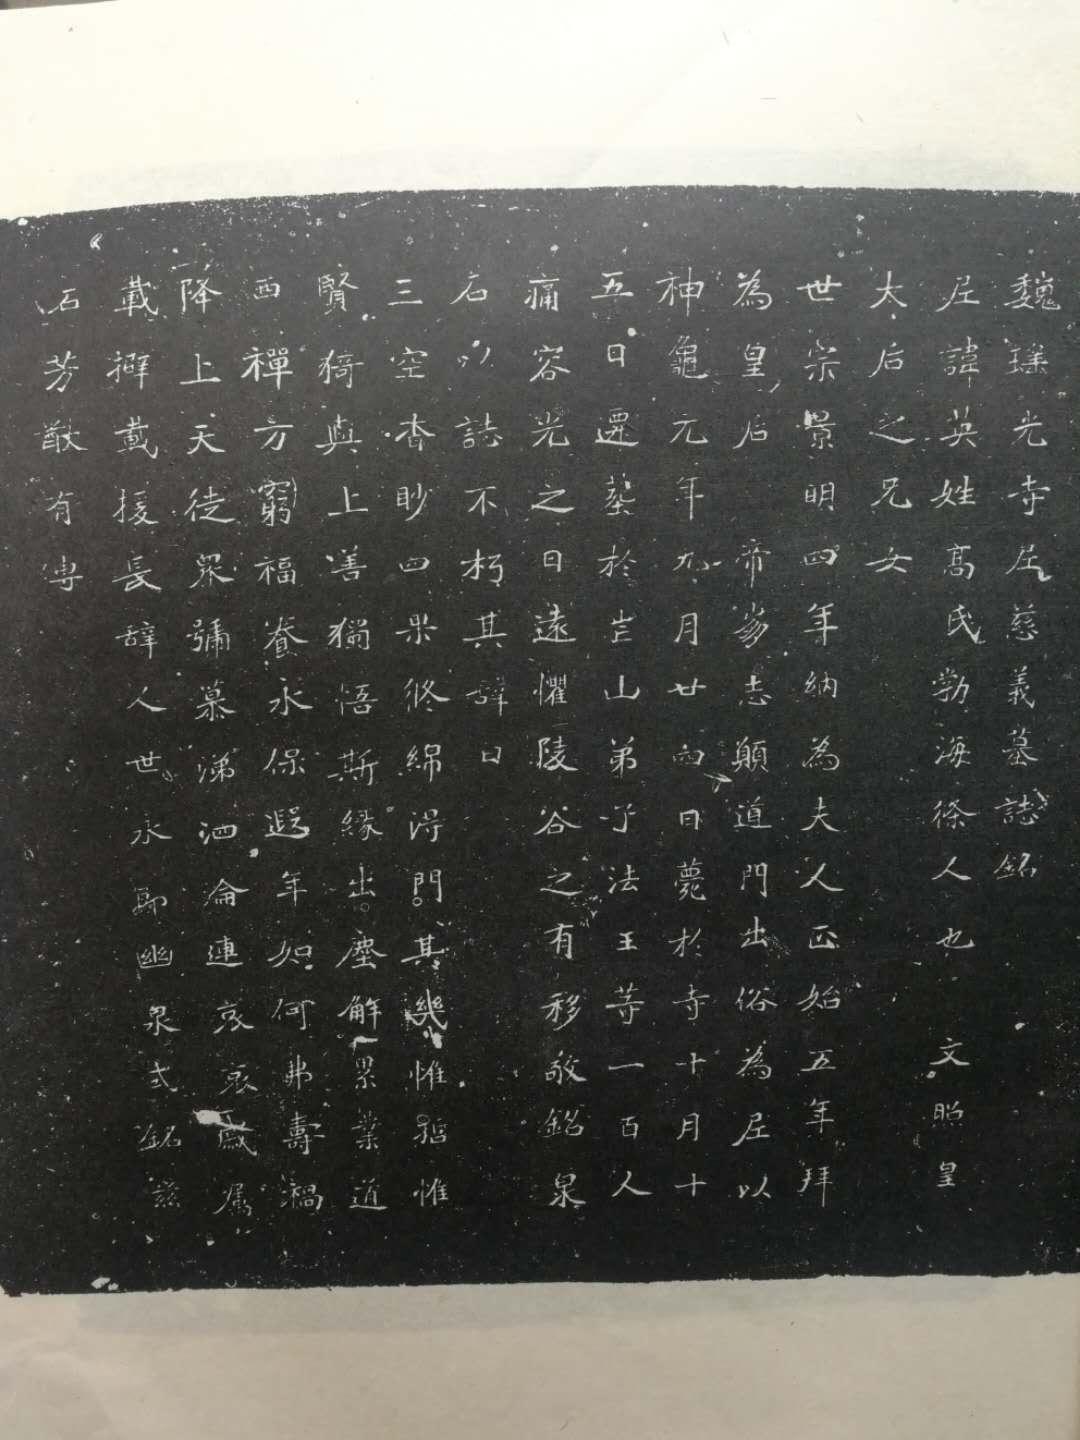 魏瑤光寺尼慈義墓誌銘
尼諱英姓高氏勃海條人也文昭皇
太后之兄女
世宗景明四年納為夫人正始五年拜
為皇后帝崩志願道門出俗為尼以
神龜元年九月廿四日薨於寺十月十
五日遷葬於芒山弟子法王等一百人
痛容光之日遠懼陵谷之有移敬銘泉
石以誌不朽其辞曰
三空杳眇四果攸綿得門其幾惟哲惟
賢猗與上善獨悟斯緣出塵解累業道
西禪方窮福養永保遐年如何弗壽禍
降上天徒眾號慕涕泗淪連哀哀戚属
載擗載援長辞人世永歸幽泉式銘茲
石芳猷有傳